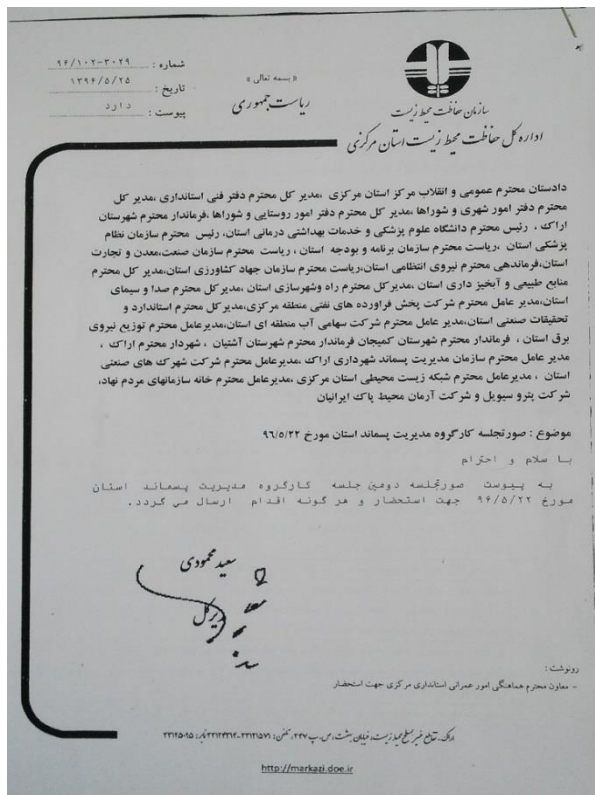 شماره : ۹۶/۱۰۲-۳۰۲۹
تاریخ : ۱۳۹۶/۵/۲۵
پیوست : دارد
« بسمه تعالی »
ریاست جمهوری
سازمان حفاظت محیط زیست
اداره کل حفاظت محیط زیست استان مرکزی
دادستان محترم عمومی و انقلاب مرکز استان مرکزی ،مدیر کل محترم دفتر فنی استانداری ،مدیر کل
محترم دفتر امور شهری و شوراها ،مدیر کل محترم دفتر امور روستایی و شوراها ،فرماندار محترم شهرستان
اراک ، رئیس محترم دانشگاه علوم پزشکی و خدمات بهداشتی درمانی استان، رئیس محترم سازمان نظام
پزشکی استان ،ریاست محترم سازمان برنامه و بودجه استان ، ریاست محترم سازمان صنعت،معدن و تجارت
استان،فرماندهی محترم نیروی انتظامی استان،ریاست محترم سازمان جهاد کشاورزی استان،مدیر کل محترم
منابع طبیعی و آبخیز داری استان ،مدیرکل محترم راه وشهرسازی استان ،مدیرکل محترم صدا و سیمای
استان،مدیر عامل محترم شرکت پخش فراورده های نفتی منطقه مرکزی،مدیرکل محترم استاندارد و
تحقیقات صنعتی استان،مدیر عامل محترم شرکت سهامی آب منطقه ای استان،مدیرعامل محترم توزیع نیروی
برق استان ، فرماندار محترم شهرستان کمیجان فرماندار محترم شهرستان آشتیان ، شهردار محترم اراک ،
مدیر عامل محترم سازمان مدیریت پسماند شهرداری اراک ،مدیرعامل محترم شرکت شهرک های صنعتی
استان ، مدیرعامل محترم شبکه زیست محیطی استان مرکزی ،مدیرعامل محترم خانه سازمانهای مردم نهاد،
شرکت پترو سیویل و شرکت آرمان محیط پاک ایرانیان
موضوع : صورتجلسه کارگروه مدیریت پسماند استان مورخ ۹۶/۵/۲۲
با سلام و احترام
به پیوست صورتجلسه دومین جلسه کارگروه مدیریت پسماند استان
مورخ ۹۶/۵/۲۲ جهت استحضار و هر گونه اقدام ارسال می گردد.
سعید محمودی
مدیرکل
رونوشت :
- معاون محترم هماهنگی امور عمرانی استانداری مرکزی جهت استحضار
http://markazi.doe.ir